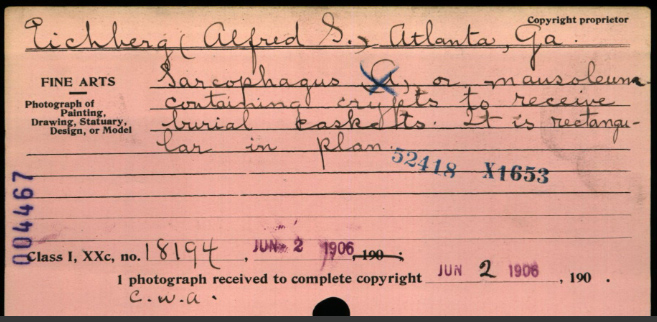 Copyright proprietor
Eichberg (Alfred S.), Atlanta, Ga.
FINE ARTS
Photograph of
Painting,
Drawing, Statuary,
Design, or Model
Sarcophagus (A, or mausoleum
containing crypts to receive
burial caskets. It is rectangu-
lar in plan.
52418 X1653
004467
Class I, XXc, no. 18194, JUN 2 1906, 190 ;
1 photograph received to complete copyright JUN 2 1906, 190 .
C.W.A.